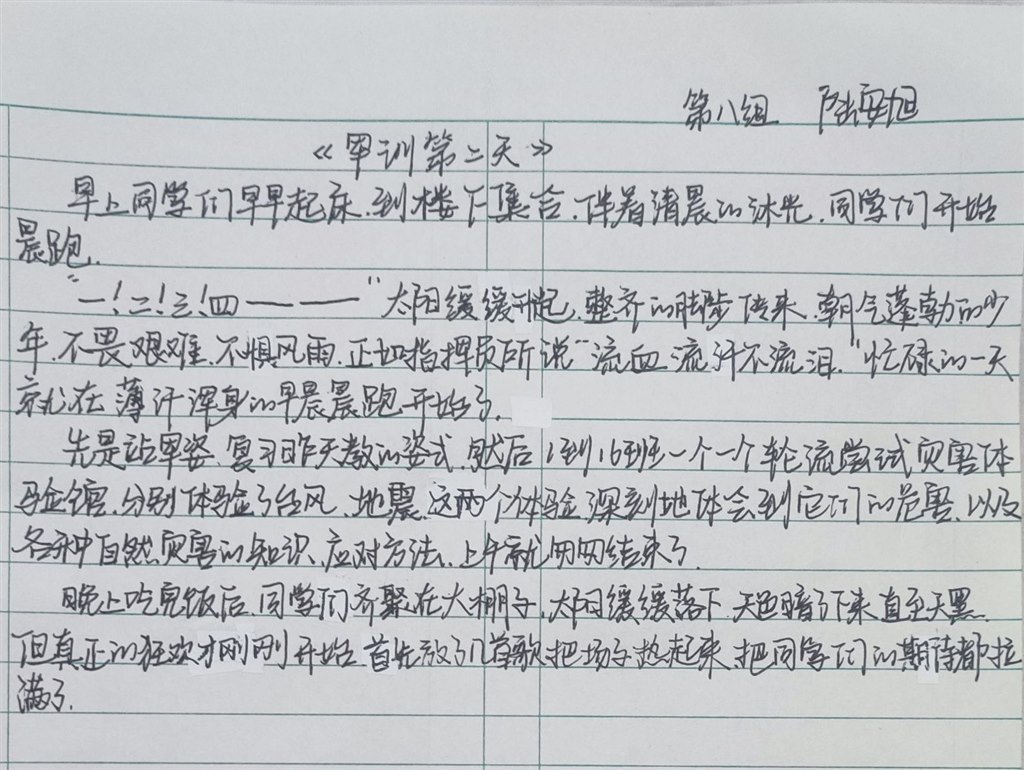 第八组 陆安旭
《军训第二天》
早上同学们早早起床,到楼下集合,伴着清晨的沐光,同学们开始
晨跑.
"一!二!三!四———— "太阳缓缓升起,整齐的脚步传来,朝气蓬勃的少
年,不畏艰难,不惧风雨,正如指挥员所说"流血流汗不流泪,"忙碌的一天
就在薄汗浑身的早晨晨跑开始了.
先是站军姿,复习昨天教的姿式,然后1到16班一个一个轮流尝试灾害体
验馆,分别体验了台风、地震,这两个体验,深刻地体会到它们的危害,以及
各种自然灾害的知识、应对方法,上午就匆匆结束了
晚上吃完饭后,同学们齐聚在大棚子,太阳缓缓落下,天色暗了下来直至天黑.
但真正的狂欢才刚刚开始,首先放了几首歌把场子热起来,把同学们的期待都拉
满了.